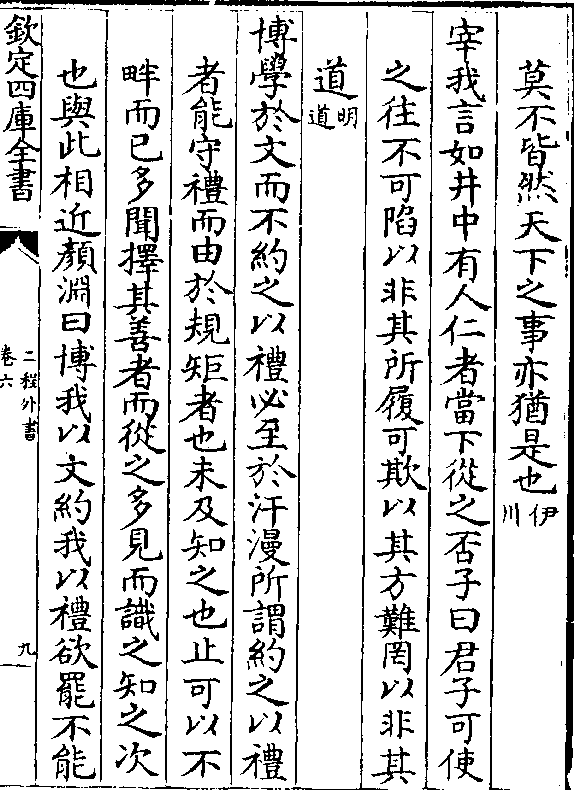 莫不皆然天下之事亦猶是也伊川
宰我言如井中有人仁者當下從之否子曰君子可使
之往不可陷以非其所履可欺以其方難罔以非其
道明道
博學於文而不約之以禮必至於汗漫所謂約之以禮
者能守禮而由於規矩者也未及知之也止可以不
畔而已多聞擇其善者而從之多見而識之知之次
也與此相近顏淵曰博我以文約我以禮欲罷不能
欽定四庫全書
二程外書
卷六
九